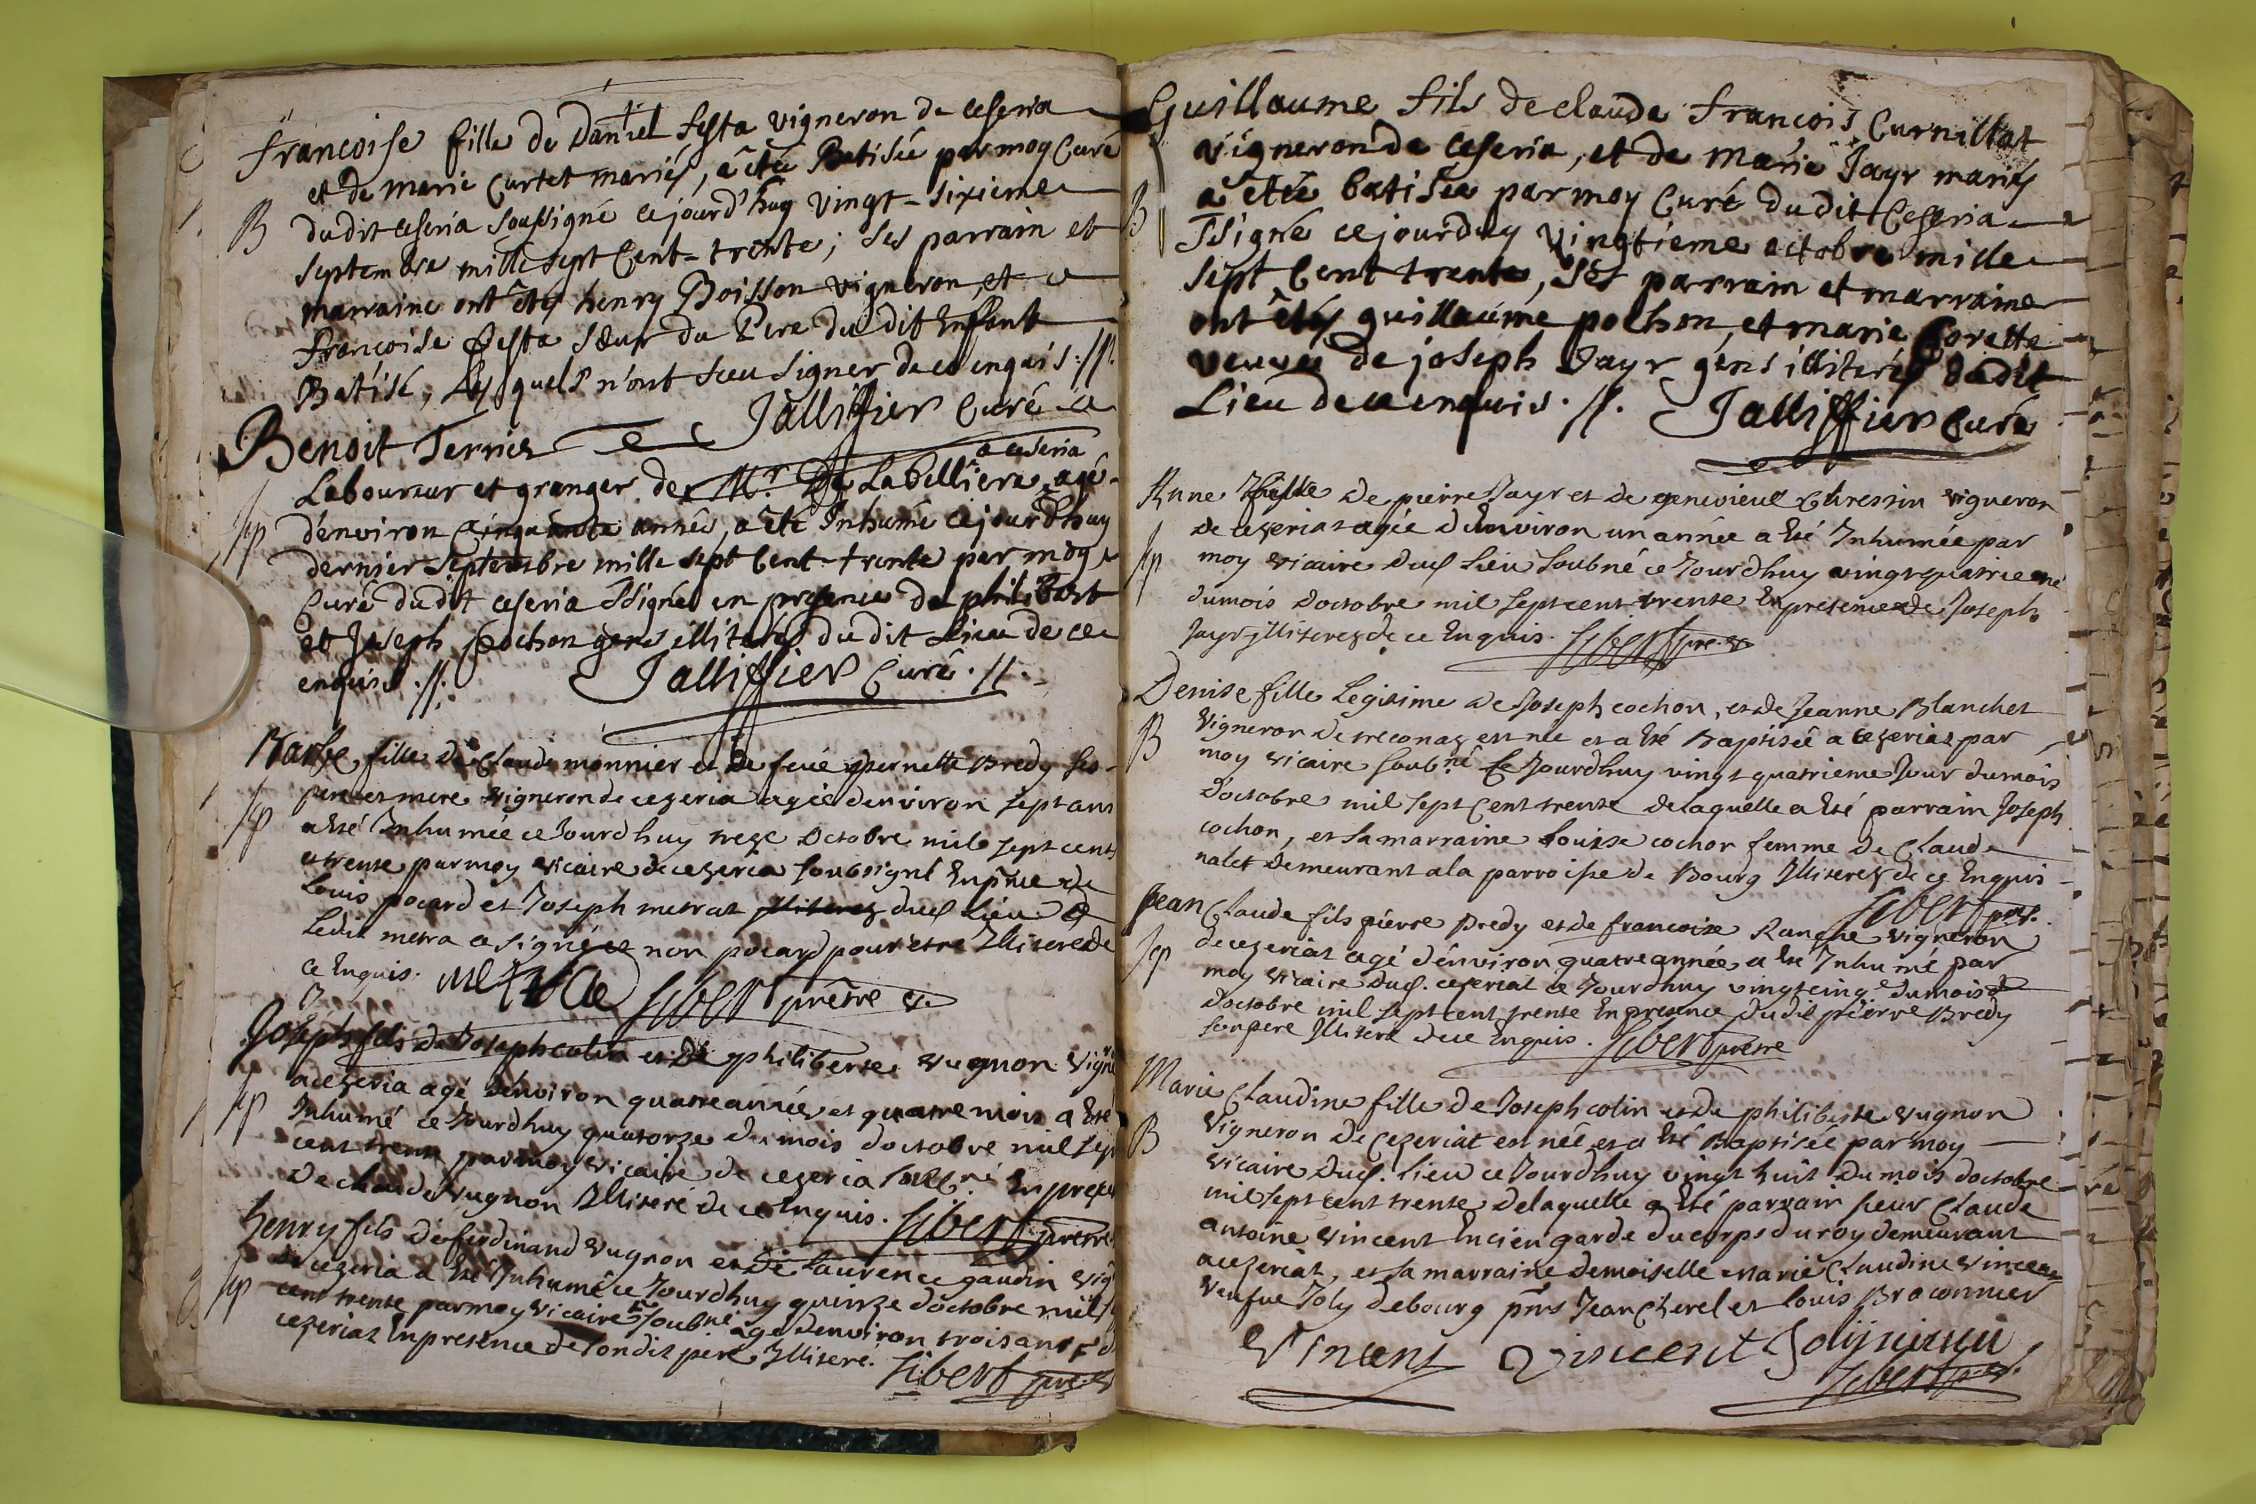 francoise fille de Daniel festa vigneron de ceseria
et de marie Curtet mariés, a êté Batisée par moy Curé
B dudit ceseria soussigné cejourd'huy vingt-sixieme
septembre mille sept Cent-trente; ses parrain et
marraine ont êtés henry Boisson vigneron, et
francoise festa sœur du Pere du dit Enffant
Batisé, Lesquels n'ont sceu signer de ce enquis .//.
Jalliffier Curé
Benoit Terrier
Laboureur et granger de Mr. De Labelliere a ceseria, agé
Sep d'environ Cinquante année, a êté Inhumé cejourd'huy
dernier Septembre mille sept Cent-trente par moy
Curé dudit ceseria ssigné en presence de philibert
et Joseph pochon gens illiterés dudit Lieu de ce
enquis .//. Jalliffier Curé .//.
Barbe fille de Claude monnier et de feüe pernette Bredy ses
pere et mere vigneron de cezeria agée denviron sept ans
Sep a eté Inhumée ce Jourdhuy treze Octobre mil sept cents
et trente par moy vicaire de cezeria soubsigné En pnce de
Louis pocard et Joseph metrat duds Lieu
Ledit metra a signé et non pocard pour etre Illiteré de
ce Enquis. metra Sibert prêtre
Joseph fils de Joseph colin et de philiberte vugnon vigne
a cezeria agé denviron quatre année et quatre mois a Eté
Sep Inhumé ce Jourdhuy quatorze du mois doctobre mil sept
cent trente par moy vicaire de cezeria soubné En presen
De claude vugnon Illiteré de ce Enquis. Sibert prestre
henry fils de ferdinand vugnon et de laurence gaudin vig
de cezeria a Eté Inhumé ce Jourdhuy quinze doctobre mil
Sep cent trente par moy vicaire soubné agé denviron trois ans
cezeriat En presence de sondit pere Illiteré. Sibert pre
Guillaume fils de claude francois Curnillat
vigneron de ceseria, et de marie Jayr mariés
B a êtée batisée par moy Curé du dit Ceseria
ssigné cejourduy vingtieme octobre mille
sept Cent trente, ses parrain et marraine
ont êtés guillaume pochon, et marie Corette
veuve de joseph Jayr gens illiterés dudit
Lieu de ce enquis .//. Jalliffier Curé
Anne fille de pierre Jayr et de genevieve Chressin vigneron
de cezeriat agée d'Environ un année a Eté Inhumée par
Sep moy vicaire duds Lieu soubné ce Jourdhuy vingt quatrieme
dumois doctobre mil sept cent trente En presence de Joseph
Jayr Illiterez de ce Enquis. Sibert pre
Denise fille Legitime de Joseph cochon, et de Jeanne Blanchet
B vigneron de treconaz est née et a Eté Baptisée a cezeriat par
moy vicaire soubné Ce Jourdhuy vingt quatrieme Jour dumois
doctobre mil sept Cent trente de laquelle a Eté parrain Joseph
cochon, et sa marraine Louise cochon femme de Claude
nalet demeurant a la parroisse de Bourg Illiterez de ce Enquis
Sibert pre.
Jean Claude fils pierre Bredy et de francoise Ranche vigneron
Sep de cezeriat agé d'environ quatre année, a Eté Inhumé par
moy vicaire duds. cezeriat ce Jourdhuy vingtcinqe dumois
doctobre mil sept cent trente En presence dudit pierre Bredy
son pere Illiteré de ce Enquis. Sibert prestre
Marie Claudine fille de Joseph colin et de philiberte vugnon
B vigneron de Cezeriat est née et a Eté Baptisée par moy
vicaire duds. lieu ce Jourdhuy vingt huit Dumois doctobre
mil sept cent trente de laquelle a Eté parrain sieur Claude
antoine vincent Encien garde du corps du roy demeurant
a cezeriat, et sa marraine demoiselle Marie Claudine vincent
veufue Joly de bourg pnts Jean Cherel et Louis Braconnier
Vincent Vincent
Sibert pre.